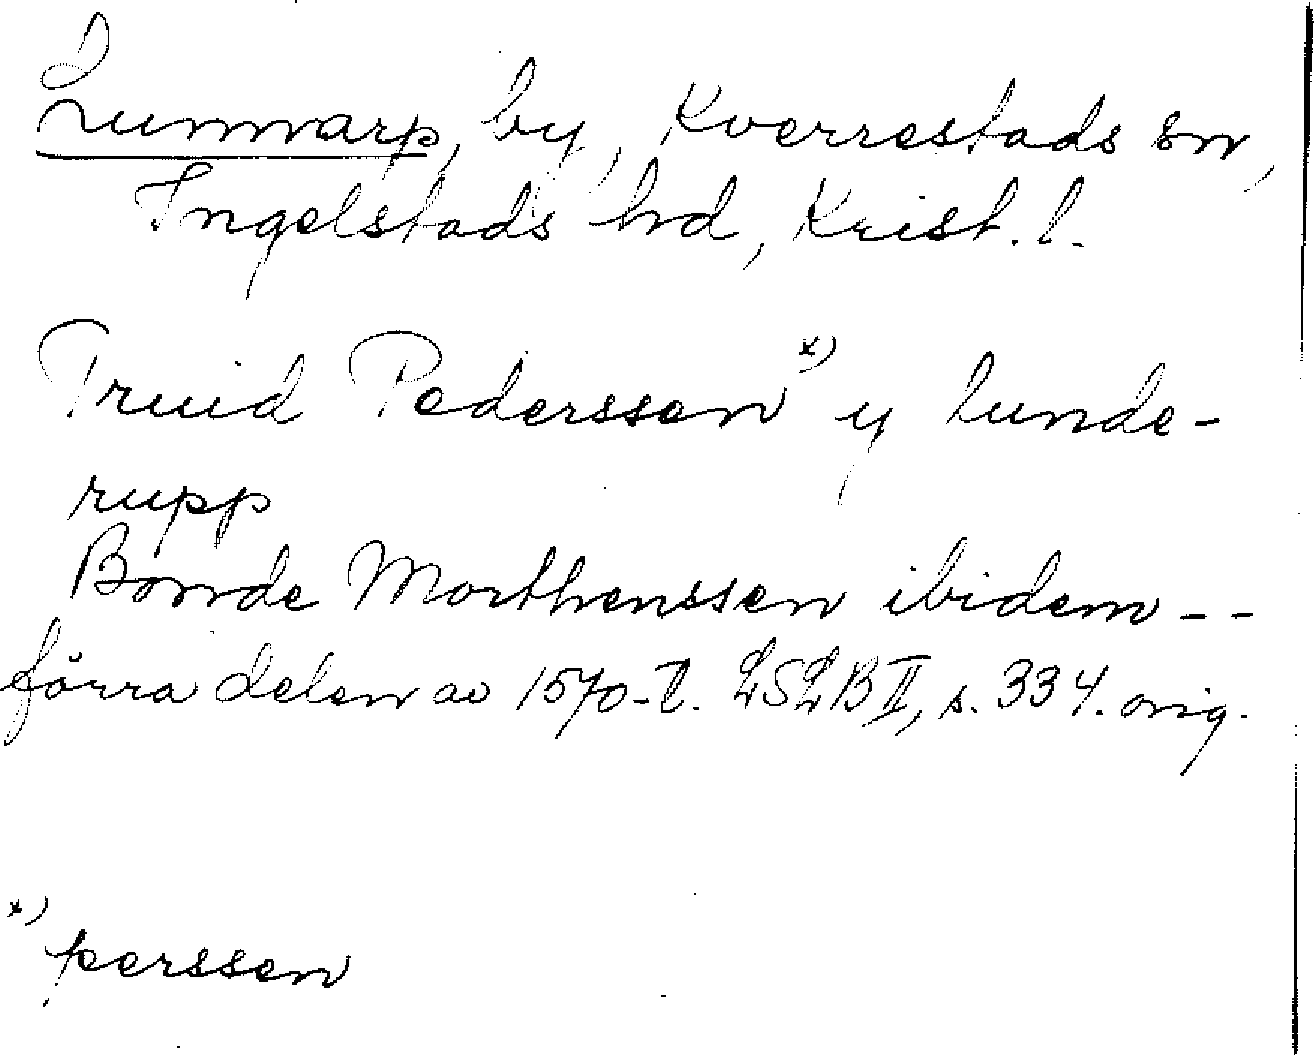 Lunnarp, by, Kverrestads sn,
Ingelstads hd, Krist. l.
Truid Pederssen *) y lunde-
rupp
Bonde Morthenssen ibidem - -
förra delen av 1570-t. LSLB II, s. 334. orig.
*) perssen